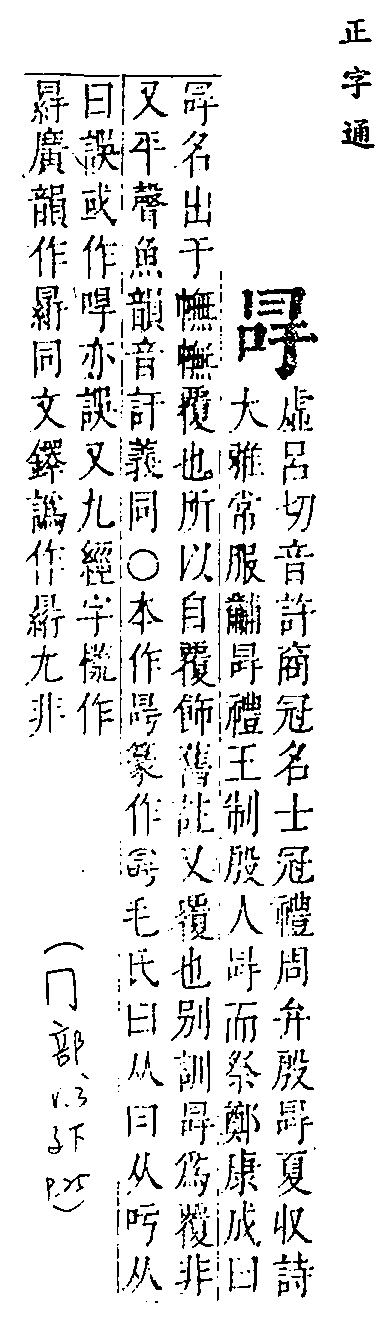 正字通
冔
虛呂切音許商冠名士冠禮周弁殷冔夏収詩
大雅常服黼冔禮王制殷人冔而祭鄭康成曰
冔名出于幠幠覆也所以自覆飾舊註又覆也別訓冔爲覆非
又平聲魚韻音訏義同○本作冔篆作冔毛氏曰从日从吁从
曰誤或作哻亦誤又九經字㨾作
冔廣韻作𦋡同文鐸譌作𦋡尤非
(冂部
v.3
子下
P.25)